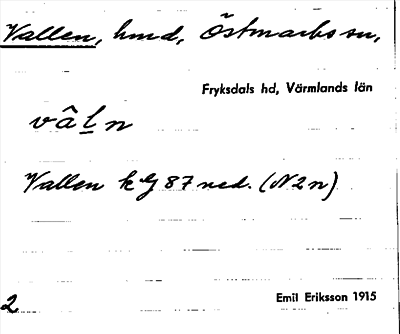 Vallen, hmd, Östmarks sn,
Fryksdals hd, Värmlands län
vâl̲n
Vallen kG 87 ned. (N2n)
Emil Eriksson 1915
2